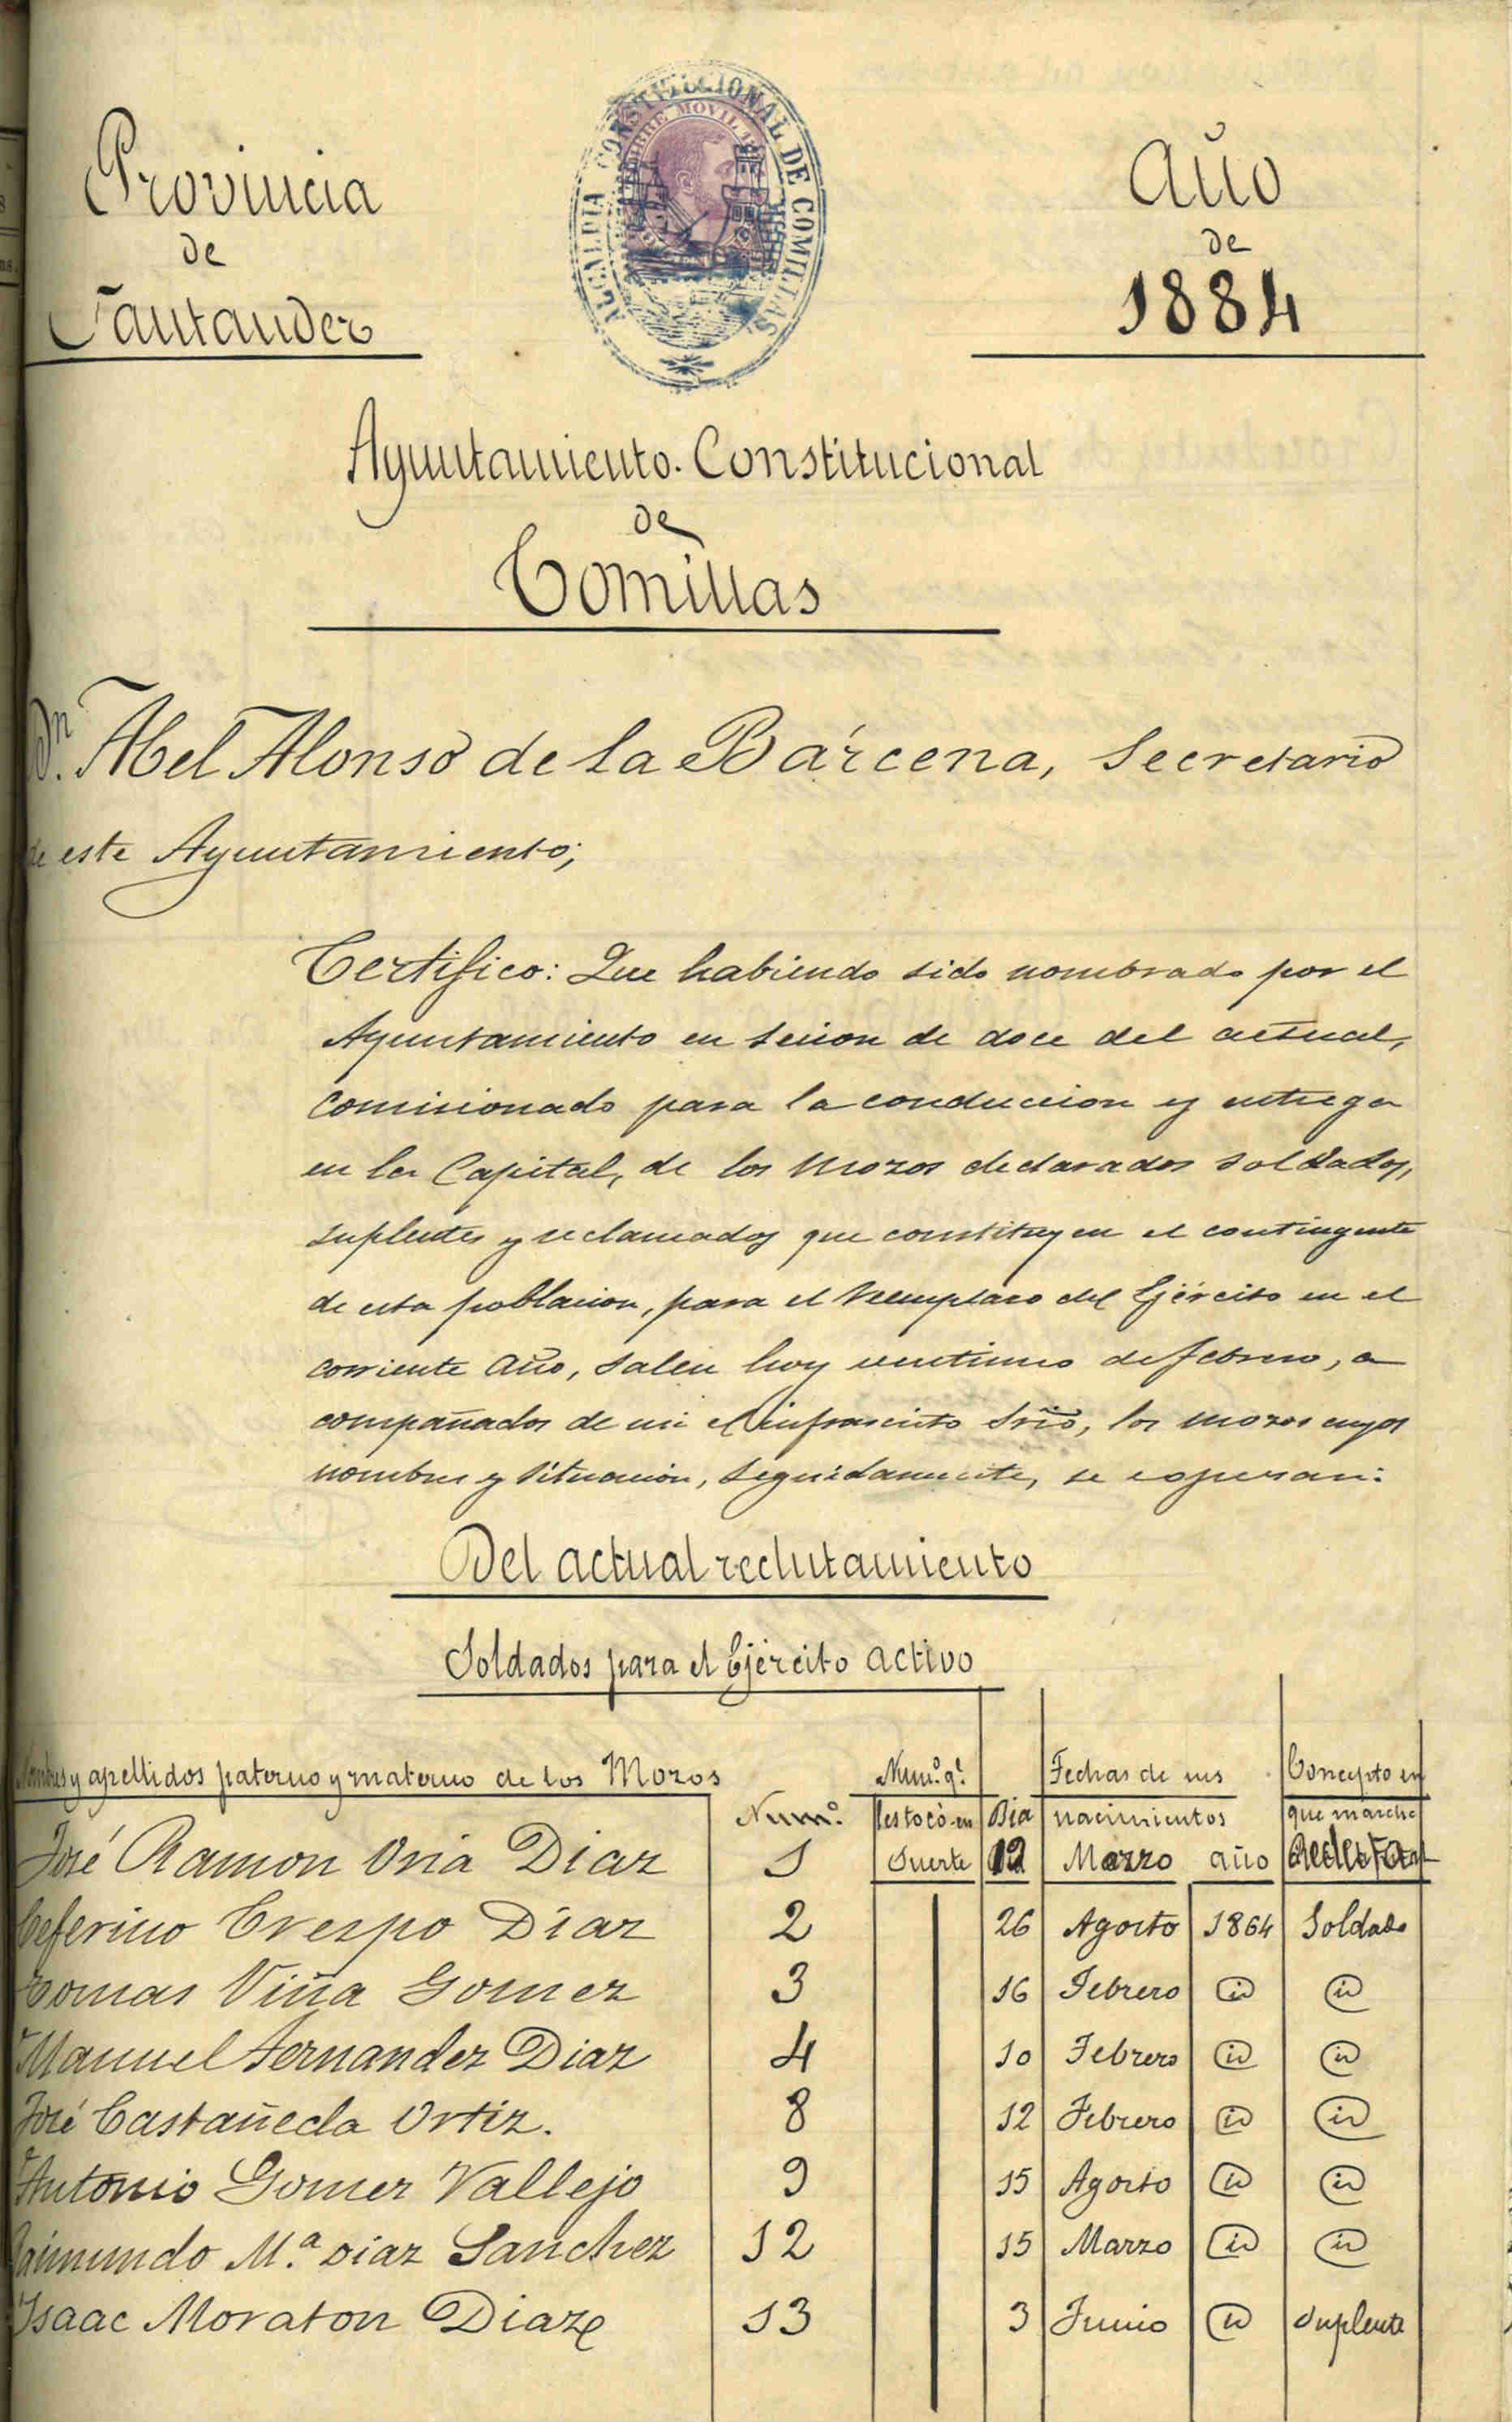 Provincia
de
Santander
ALCALDIA CONSTITUCIONAL DE COMILLAS
TIMBRE MOVIL
Año
de
1884
Ayuntamiento. Constitucional
de
Comillas
Dn. Abel Alonso de la Bárcena, Secretario
de este Ayuntamiento;
Certifico: Que habiendo sido nombrado por el
Ayuntamiento en sesion de doce del actual,
comisionado para la conduccion y entrega
en la Capital, de los mozos declarados soldados,
suplentes y reclamados que constituyen el contingente
de esta poblacion, para el reemplazo del Ejército en el
corriente año, salen hoy veintiuno de febrero, a
compañados de mi el infrascrito Srio, los mozos cuyos
nombres y situacion, seguidamente, se espresan:
Del actual reclutamiento
Soldados para el Ejército activo
Nombres y apellidos paterno y materno de los Mozos Numº. Num.º q.e les tocó en Suerte Dia Fechas de sus nacimientos año Concepto en que marcha
José Ramon Oria Diaz 1 12 Marzo
Ceferino Crespo Díaz 2 26 Agosto 1864 Soldado
Tomas Viña Gomez 3 16 Febrero id id
Manuel Fernandez Diaz 4 10 Febrero id id
José Castañeda Ortiz. 8 12 Febrero id id
Antonio Gomez Vallejo 9 15 Agosto id id
Raimundo M.ª Diaz Sanchez 12 15 Marzo id id
Isaac Moraton Diaz 13 3 Junio id Suplente